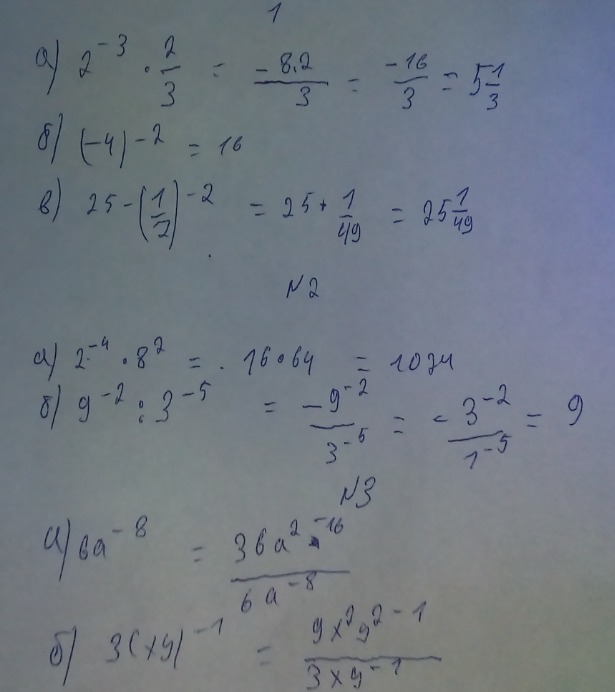 1
а) 2^-3 · 2/3 = -8·2/3 = -16/3 = 5 1/3
б) (-4)^-2 = 16
в) 25 - (1/7)^-2 = 25 + 1/49 = 25 1/49
N2
а) 2^-4 · 8^2 = . 16·64 = 1024
б) 9^-2 : 3^-5 = -9^-2/3^-5 = -3^-2/1^-5 = 9
N3
а) 6a^-8 = 36a^2 · ^-16/6a^-8
б) 3(xy)^-1 = 9x^2y^2-1/3xy^-1